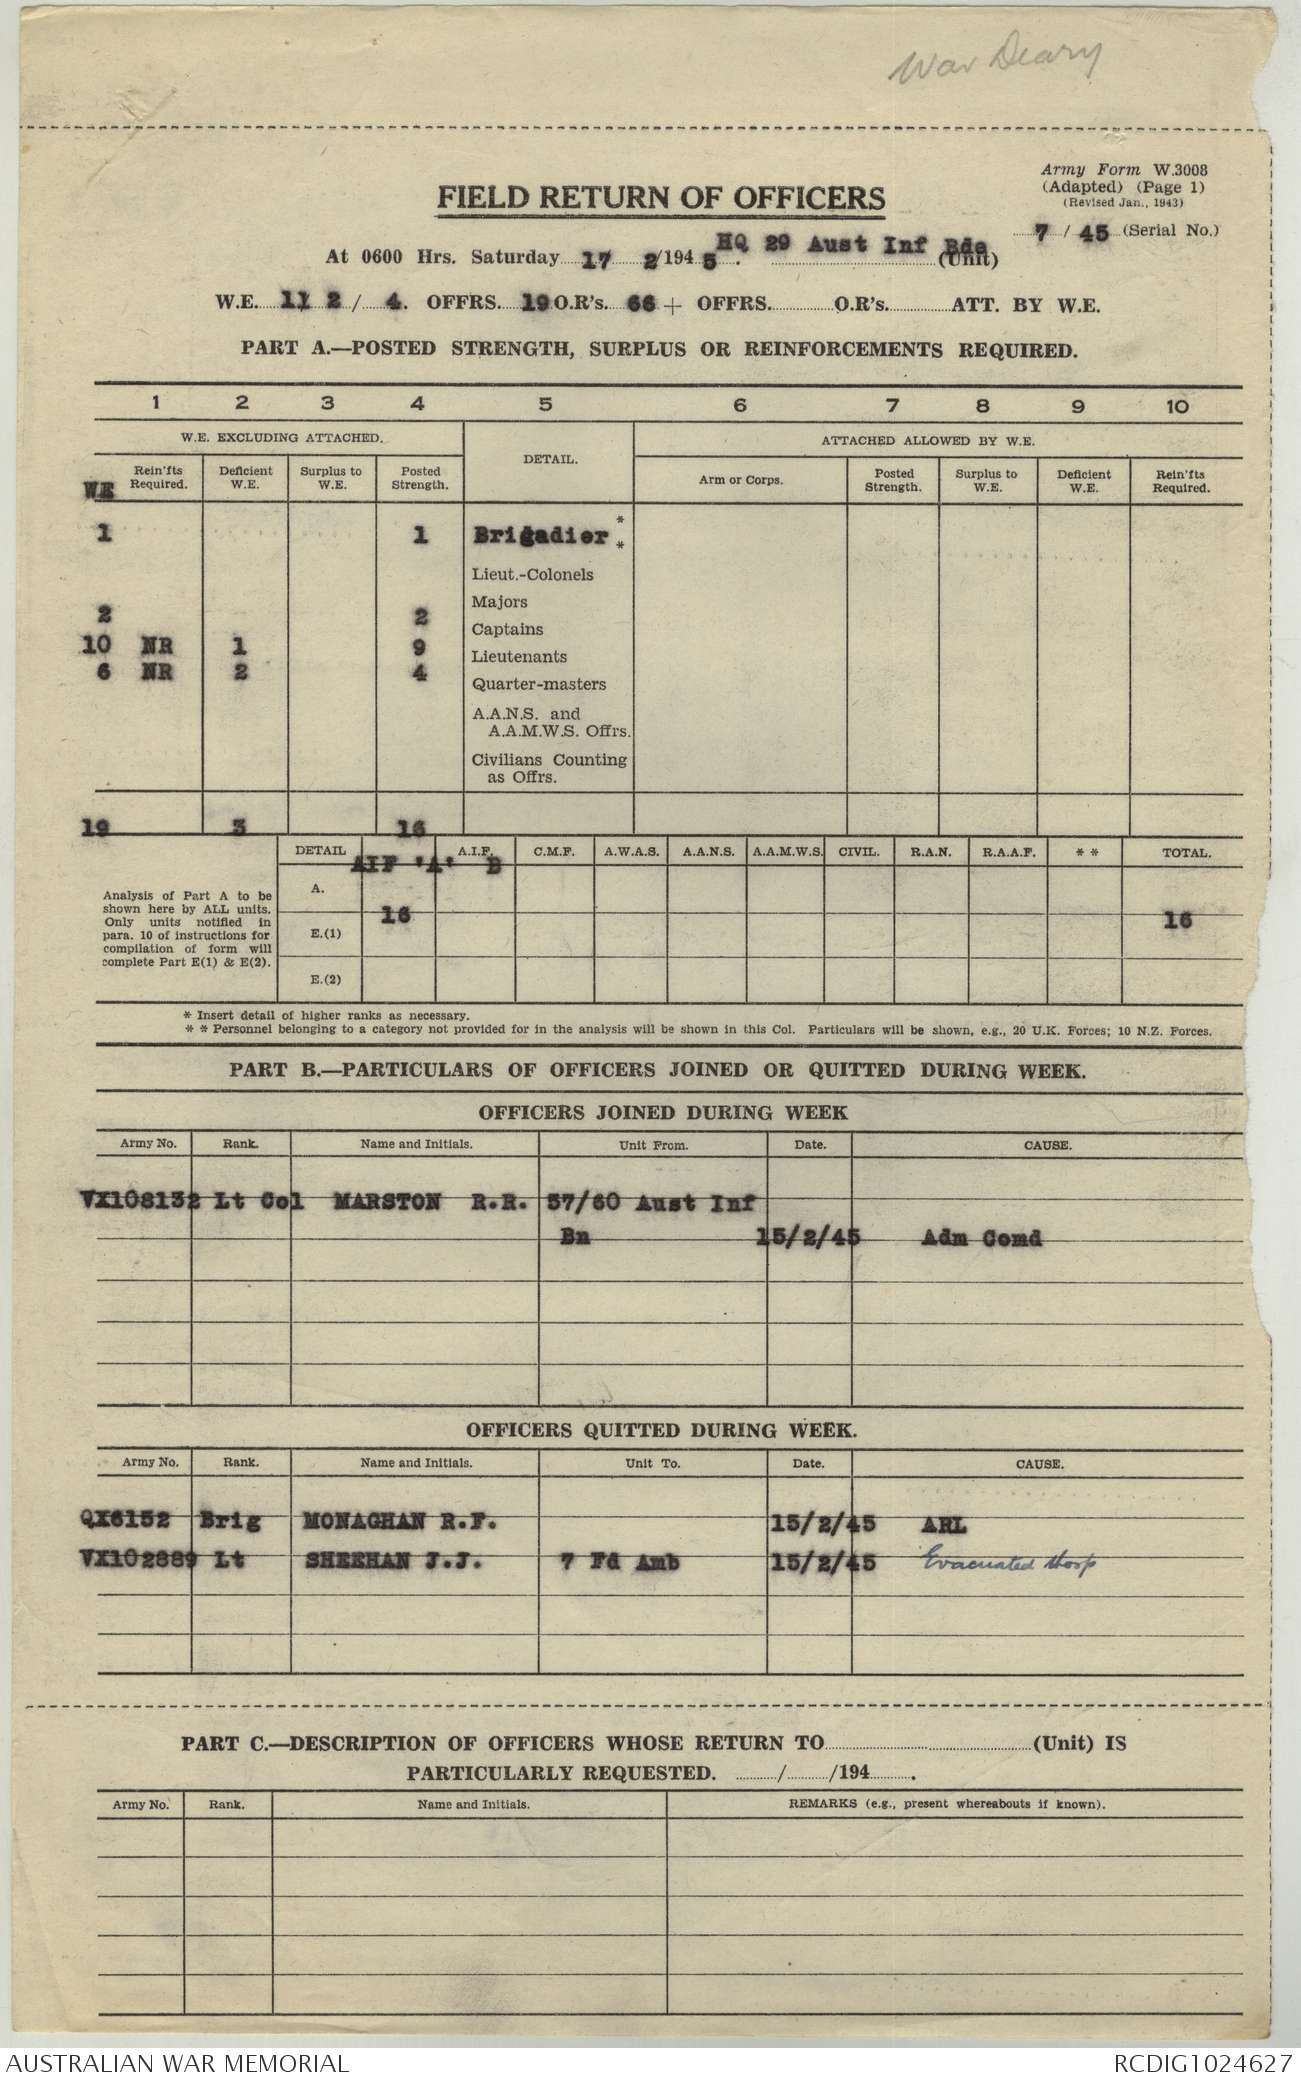 War Deary
Army Form W.3008
(Adapted) (Page 1)
(Revised Jan., 1943)
FIELD RETURN OF OFFICERS
7 / 45 (Serial No.)
At 0600 Hrs. Saturday 17 2/1945. HQ 29 Aust Inf Bde (Unit)
W.E. 11 2/ 4. OFFRS. 19 O.R's. 66 + OFFRS. O.R's. ATT. BY W.E.
PART A.—POSTED STRENGTH, SURPLUS OR REINFORCEMENTS REQUIRED.
1 2 3 4 5 6 7 8 9 10
W.E. EXCLUDING ATTACHED. DETAIL. ATTACHED ALLOWED BY W.E.
WE Rein'fts Required. Deficient W.E. Surplus to W.E. Posted Strength. Arm or Corps. Posted Strength. Surplus to W.E. Deficient W.E. Rein'fts Required.
1 1 Brigadier * *
Lieut.-Colonels
2 2 Majors
Captains
10 NR 1 9 Lieutenants
6 NR 2 4 Quarter-masters
A.A.N.S. and
A.A.M.W.S. Offrs.
Civilians Counting
as Offrs.
19 3 16
DETAIL A.I.F. C.M.F. A.W.A.S. A.A.N.S. A.A.M.W.S. CIVIL. R.A.N. R.A.A.F. * * TOTAL.
AIF 'A' B
Analysis of Part A to be
shown here by ALL units.
Only units notified in
para. 10 of instructions for
compilation of form will
complete Part E(1) & E(2).
A.
16 16
E.(1)
E.(2)
* Insert detail of higher ranks as necessary.
* * Personnel belonging to a category not provided for in the analysis will be shown in this Col. Particulars will be shown, e.g., 20 U.K. Forces; 10 N.Z. Forces.
PART B.—PARTICULARS OF OFFICERS JOINED OR QUITTED DURING WEEK.
OFFICERS JOINED DURING WEEK
Army No. Rank. Name and Initials. Unit From. Date. CAUSE.
VX108132 Lt Col MARSTON R.R. 57/60 Aust Inf
Bn 15/2/45 Adm Comd
OFFICERS QUITTED DURING WEEK.
Army No. Rank. Name and Initials. Unit To. Date. CAUSE.
QX6152 Brig MONAGHAN R.F. 15/2/45 ARL
VX102889 Lt SHEEHAN J.J. 7 Fd Amb 15/2/45 Evacuated Hosp
PART C.—DESCRIPTION OF OFFICERS WHOSE RETURN TO (Unit) IS
PARTICULARLY REQUESTED. / /194 .
Army No. Rank. Name and Initials. REMARKS (e.g., present whereabouts if known).
AUSTRALIAN WAR MEMORIAL RCDIG1024627